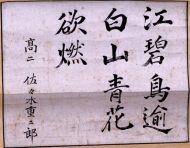 江碧鳥逾
白山青花
欲燃
高二 佐々木重三郎